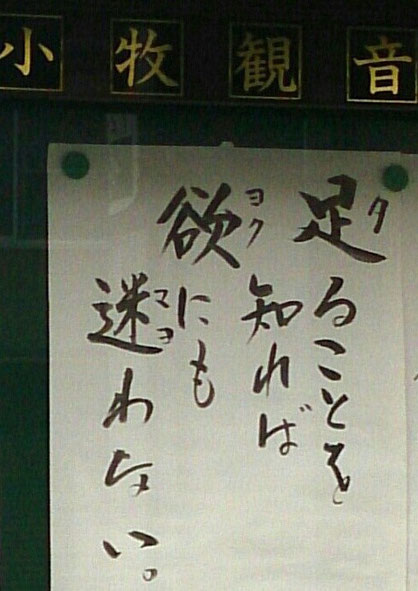 小牧観音
足ることを
知れば
欲にも
迷わない。
タ
ヨク
マヨ